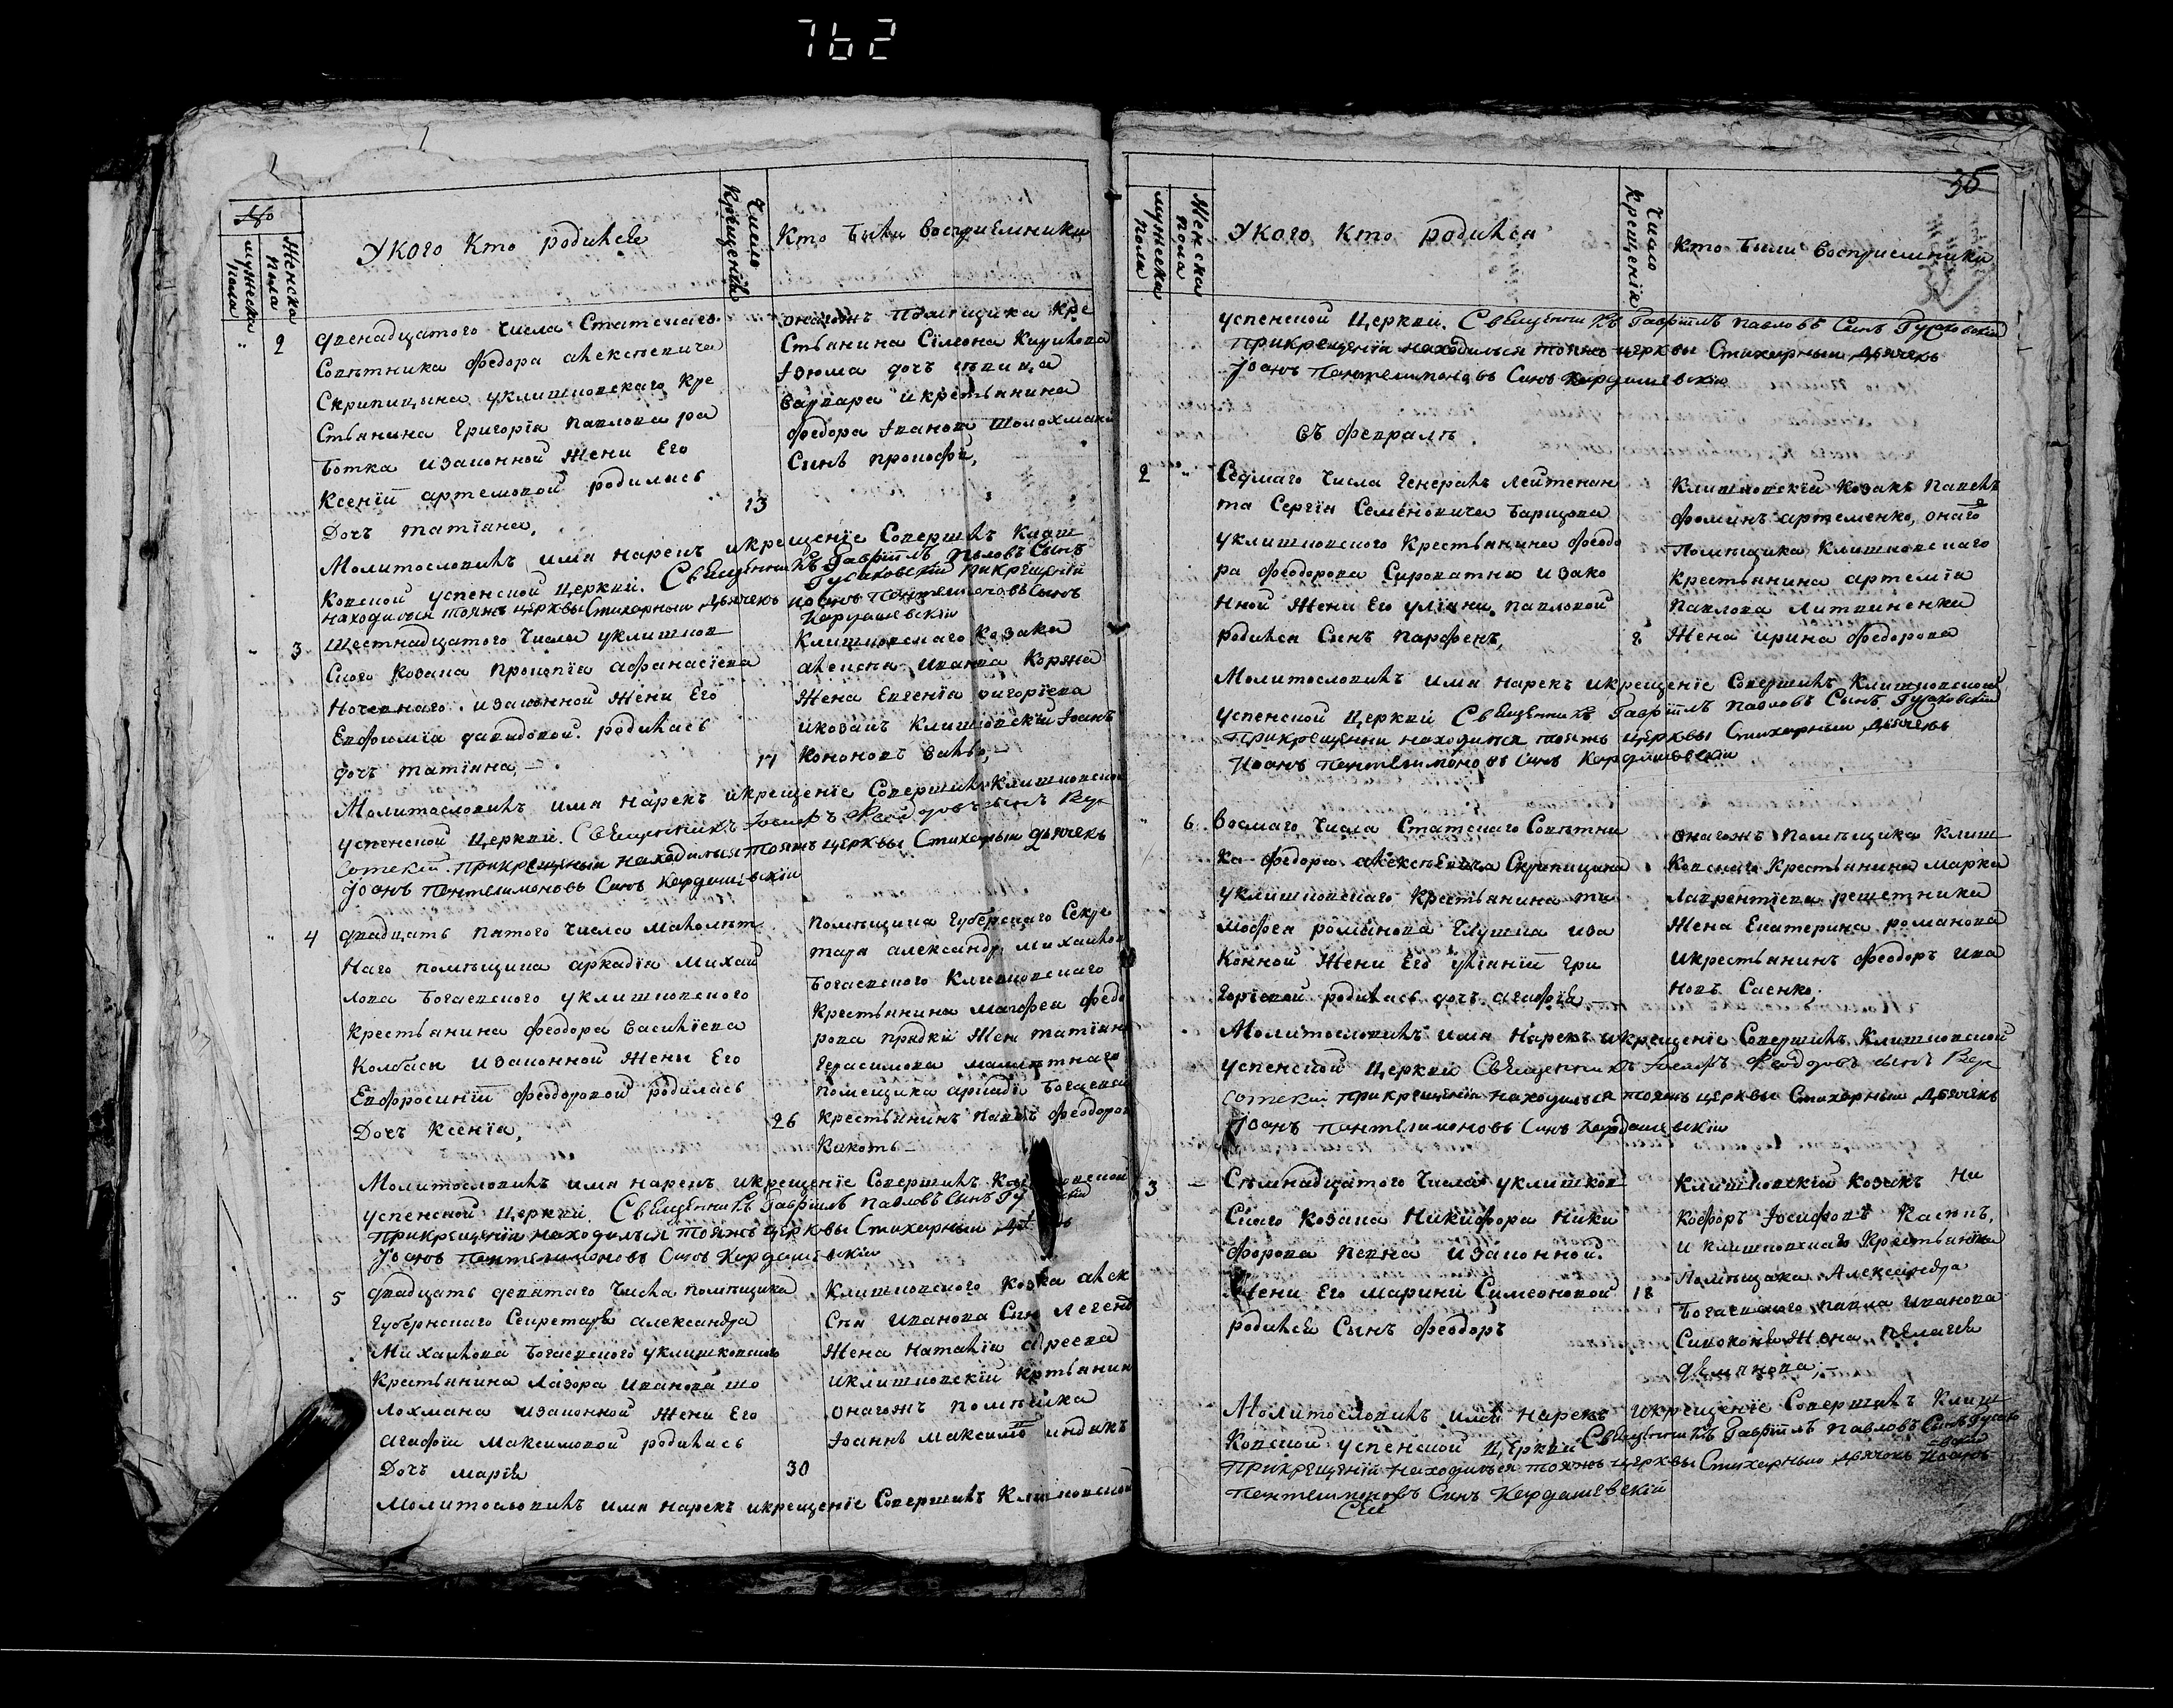 762
№
Женска пола
мужеска пола
У кого кто родился
Число крещенія
Кто были воспріемники
2
двенадцатого числа Статскаго
Советника Федора Алексеевича
Скрипицина уклишковскаго Кре
стьянина Григорія Павлова ра
ботка изаконной жени Его
Ксеніи артемовой родилась
Дочь татіана,
13
онагожъ помещика Кре
стьянина Сімеона
дочь
варвара икрестьянина
Федора Іванова Шолохмана
Синъ прокофій,
Молитословилъ имя нарекъ икрещеніе Совершилъ Клиш
ковской успенской Церкви. Священникъ Гавріилъ Павловъ Сынъ
Гусаковскій прикрещеніи
находился тояжъ церквы Стихарный Дьячекъ Иоанъ Пантелимоновъ Синъ
Кардашевскіи
3
Шестнадцатого числа уклишков
ского козака Прокопія афанасіева
Ночевнаго изаконной жени Его
Евфиміи давидовой родилась
дочь татіана,
17
Клишковскаго Козака
алексея Иванова Коряка
Жена Евгенія григоріева
икозакъ Клишковскій Іоанъ
Кононовъ
Молитословилъ имя нарекъ икрещеніе Совершилъ Клишковской
успенской Церкви. Священникъ Іосифъ Феодоровъ сынъ Вер
сотскій. прикрещеніи находился тояжъ церквы Стихарныи дьячекъ
Іоанъ пантелимоновъ Синъ Кардашевскіи
4
двадцать пятого числа малолет
наго помещика аркадія Михай
лова Богаевского уклишковского
Крестьянина Феодора Василіева
Колбаси изаконной жени Его
Евфросиніи Феодоровой родилась
Дочь Ксенія,
26
помещика Губерского Секре
таря александра михайлов
Богаевского Клишковскаго
Крестьянина матфея Федо
рова прядки жен татіан
Герасимова малолетнаго
помещика аркадія Богаевск
Крестьянинъ Павелъ Феодоров
Кикоть
Молитословилъ имя нарекъ икрещеніе Совершилъ Кл ковской
успенской Церкви. Священникъ Гавріилъ Павловъ Синъ Гу
прикрещеніи находился тояжъ церквы Стихарный
Іоанъ пантелимоновъ Синъ Кардашевскіи
5
двадцать девятаго числа помещика
Губернскаго Секретаря александра
Михаилова Богаевского уклишковского
Крестьянина Лазора Иванова шо
лохмана изаконной жени Его
агафіи Максимовой родилась
Дочь марія
30
Клишковского Коз ка алек
Сея Иванова Син Легенд
Жена наталія а реева
иклишковскій Кртьянин
онагожъ поме ика
Іоаннъ Максимо индикъ
Молитословилъ имя нарекъ икрещеніе Совершилъ Клишковской
35
мужеска пола
Женска пола
У кого кто родился
Число крещенія
Кто были воспріемники
успенской Церкви. Священникъ Гавріилъ Павловъ Синъ Гусаковскій
Прикрещеніи находился тояжъ церквы Стихарныи дьячекъ
Іоанъ Пантелимоновъ Синъ Кардашевскіи
въ Февралѣ
2
Седмаго числа Генералъ лейтенан
та Сергія Семеновича Барщова
уклишковского Крестьянина Феодо
ра Феодорова Сироватки изако
нной жени Его уліяни Павловой
родился Синъ Парфенъ,
8
Клишковскій Козакъ Павелъ
Фоминъ артеменко, онаго
Помещика Клишковскаго
Крестьянина артемія
Павлова Литвиненка
Жена ирина Федорова
Молитословилъ имя нарекъ икрещеніе Совершилъ Клишковской
успенской Церкви Священникъ Гавріилъ Павловъ Синъ Гусаковскій
прикрещении находился тояжъ церквы Стихарныи Дьячекъ
Иоанъ пантелимоновъ Синъ Кардашевскіи
6
восмаго числа Статскаго Советни
ка Федора алексеевича Скрипицина
уклишковскаго Крестьянина ти
мофея романова Глушка иза
конной жени Его уліянии Гри
горіевой родилась дочь агафія
онагожъ помещика Клиш
ковскаго Крестьянина марка
Лаврентіева решетника
Жена Екатерина романова
икрестьянинъ Феодоръ Ива
новъ Саенко
Молитословилъ имя нарекъ икрещеніе Совершилъ Клишковской
успенской Церкви Священникъ Іосифъ Феодоровъ сынъ Вер
сотскій прикрещеніи находился тояжъ церквы Стихарныи Дьячекъ
Іоанъ пантелимоновъ Синъ Кардашевскіи
3
Семнадцатого числа уклишков
скаго козака Никифора Ники
форова Певна изаконной
жени Его марини Симеоновой
родился Сынъ Феодоръ
18
Клишковскій козакъ Ни
кофоръ Іосифовъ Касянъ,
и клишковскаго Крестьянина
Помещика Александра
Богаевского павла Иванова
Сивоконя Жена пелагея
демянова,
Молитословилъ имя нарекъ икрещеніе Совершилъ Клиш
ковской успенской Церкви Священникъ Гавріилъ Павловъ Синъ Гусако
вскій
прикрещеніи находился тояжъ церквы Стихарныи дьячокъ Иоанъ
Пантелимоновъ Синъ Кардашевскій